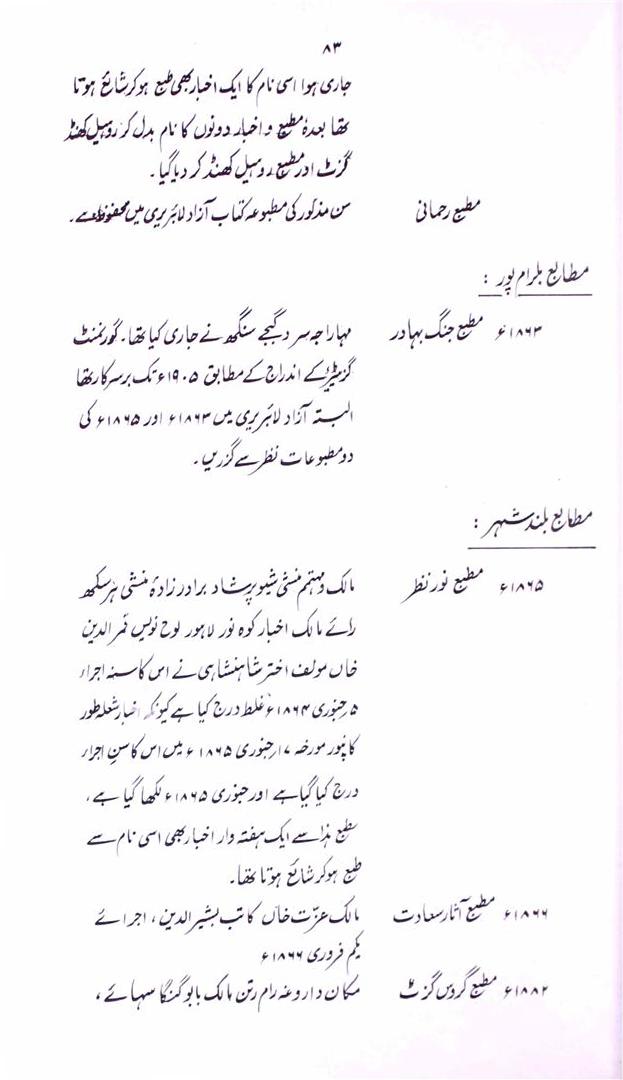 ۸۳
جاری ہوا اسی نام کا ایک اخبار بھی طبع ہوکر شائع ہوتا
تھا بعدہٗ مطبع و اخبار دونوں کا نام بدل کر روہیل کھنڈ
گزٹ اور مطبع روہیل کھنڈ کر دیا گیا۔
مطبع رحمانی سن مذکور کی مطبوعہ کتاب آزاد لائبریری میں محفوظ ہے۔
مطابع بلرام پور :
۱۸۶۳ء مطبع جنگ بہادر مہاراجہ سر دگبجے سنگھ نے جاری کیا تھا۔ گورنمنٹ
گزیٹیر کے اندراج کے مطابق ۱۹۰۵ء تک برسرکار تھا
البتہ آزاد لائبریری میں ۱۸۶۳ء اور ۱۸۶۵ء کی
دو مطبوعات نظر سے گزریں۔
مطابع بلند شہر :
۱۸۶۵ء مطبع نور نظر مالک و مہتمم منشی شیو پرشاد برادر زادۂ منشی ہرسکھ
رائے مالک اخبار کوہ نور لاہور لوح نویس قمر الدین
خاں مولف اختر شاہنشاہی نے اس کا سنہ اجراء
۵ جنوری ۱۸۶۴ء غلط درج کیا ہے کیونکہ اخبار شعلہ طور
کانپور مورخہ ۱۷ جنوری ۱۸۶۵ء میں اس کا سن اجراء
درج کیا گیا ہے اور جنوری ۱۸۶۵ء لکھا گیا ہے،
مطبع ہذا سے ایک ہفتہ وار اخبار بھی اسی نام سے
طبع ہوکر شائع ہوتا تھا۔
۱۸۶۶ء مطبع آثار سعادت مالک عزت خاں کاتب بشیر الدین، اجرائے
یکم فروری ۱۸۶۶ء
۱۸۸۲ء مطبع گروس گزٹ مکان داروغہ رام رتن مالک بابو گنگا سہائے،